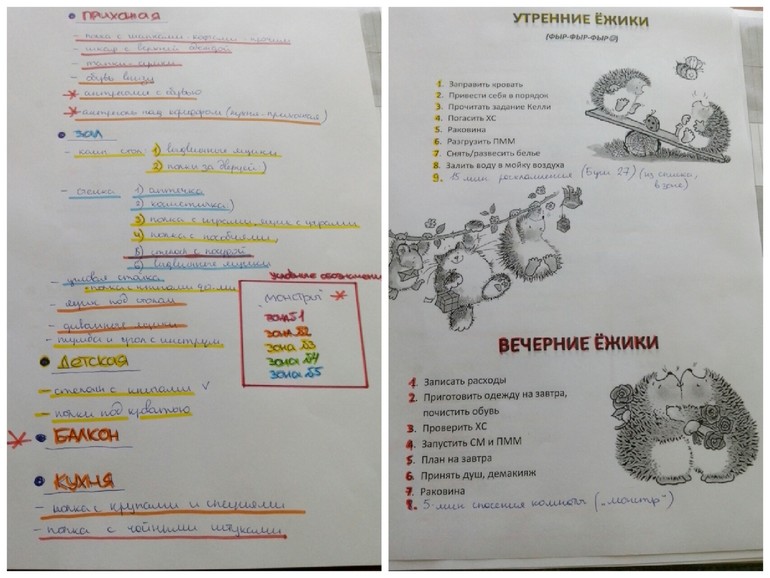 ПРИХОЖАЯ
- полка с шапками-кофтами-прочим
- шкаф с верхней одеждой
- обувь внизу
* антресоль с обувью
* антресоль над коридором (кухня-прихожая)
ЗАЛ
- комп. стол: 1) выдвижные ящики
2) полки за дверцей)
- стенка 1) аптечка
2) косметичка)
3) полка с играми,
4) полка с пособиями
5) стекло с посудой
6) выдвижные ящики
- угловая стойка
- ящик под столом
- диванные ящики
- тумба и угол с инструм.
Условные обозначени
"монстры" *
зона №1
зона №2
зона №3
зона №4
зона №5
ДЕТСКАЯ
- стеллаж с книгами v
- полки под кроватью
* БАЛКОН
КУХНЯ
- полка с крупами и специями
- полка с чайными штуками
УТРЕННИЕ ЁЖИКИ
(ФЫР-ФЫР-ФЫР☺)
1. Заправить кровать
2. Привести себя в порядок
3. Прочитать задание Келли
4. Погасить ХС
5. Раковина
6. Разгрузить ПММ
7. Снять/развесить белье
8. Залить воду в мойку воздуха
9. 15 мин. расхламления (Буги 27) (из списка, в зоне)
ВЕЧЕРНИЕ ЁЖИКИ
1. Записать расходы
2. Приготовить одежду на завтра,
почистить обувь
3. Проверить ХС
4. Запустить СМ и ПММ
5. План на завтра
6. Принять душ, демакияж
7. Раковина
8. 5 мин спасения комнаты ("монстр")